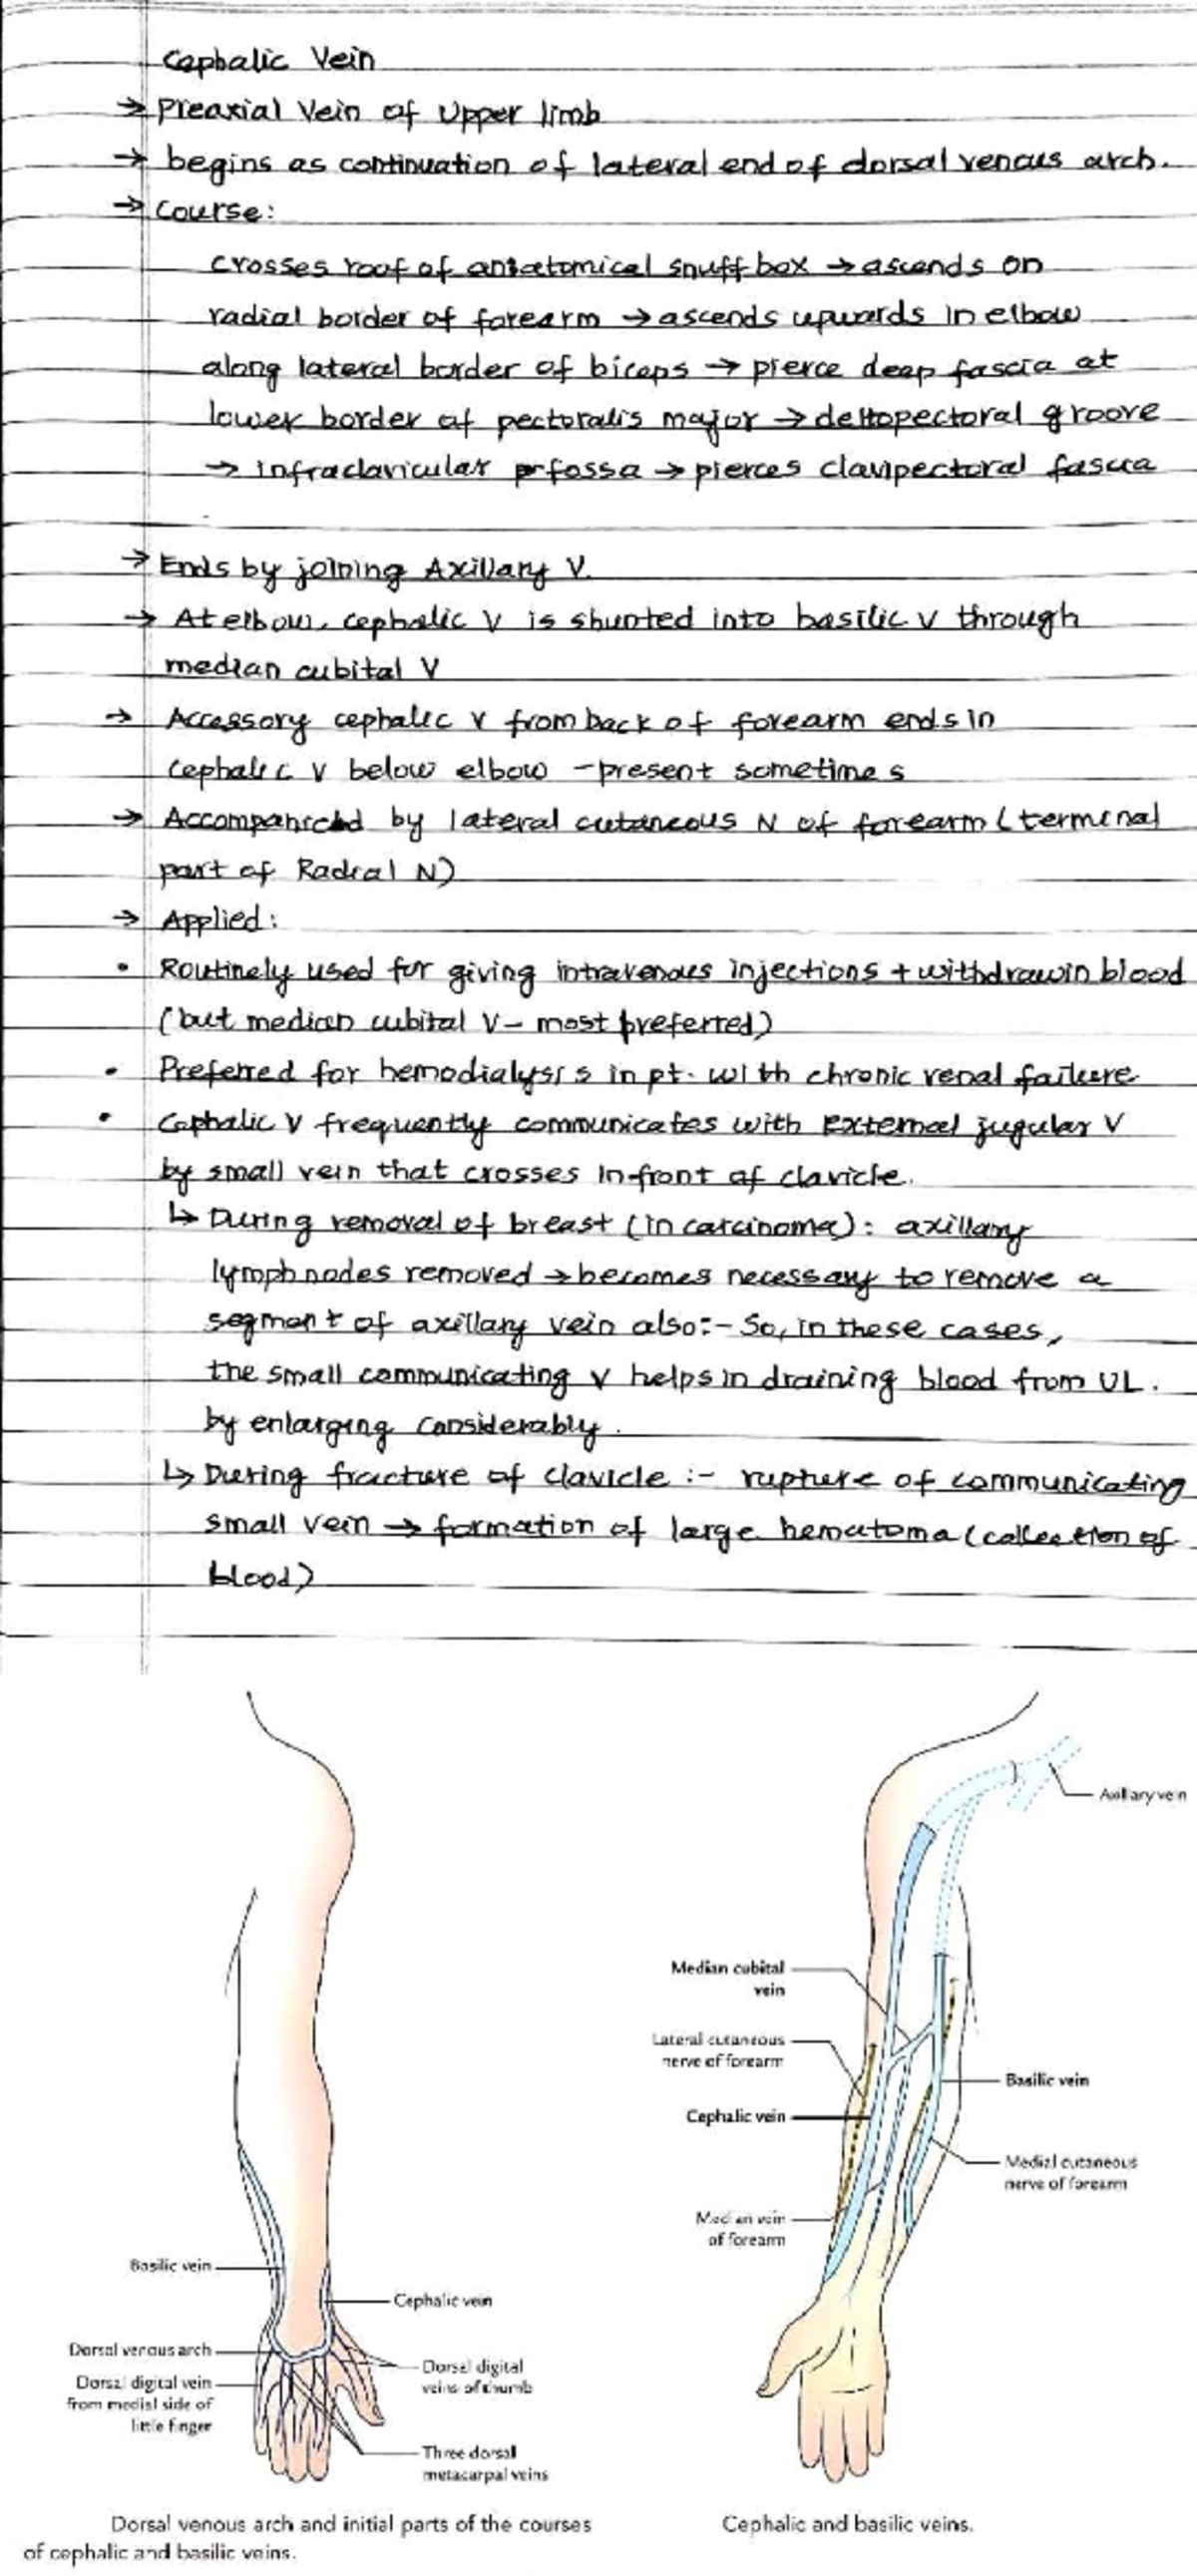 Cephalic Vein
→ Preaxial Vein of Upper limb
→ begins as continuation of lateral end of dorsal venous arch.
→ Course:
crosses roof of anatomical snuff box → ascends on
radial border of forearm → ascends upwards in elbow
along lateral border of biceps → pierce deep fascia at
lower border of pectoralis major → deltopectoral groove
→ infraclavicular fossa → pierces clavipectoral fascia
→ Ends by joining Axillary V.
→ At elbow, cephalic V is shunted into basilic V through
median cubital V
→ Accessory cephalic V from back of forearm ends in
cephalic V below elbow - present sometimes
→ Accompanied by lateral cutaneous N of forearm (terminal
part of Radial N)
→ Applied:
• Routinely used for giving intravenous injections + withdrawin blood
(but median cubital V - most preferred)
• Preferred for hemodialysis in pt. with chronic renal failure
• Cephalic V frequently communicates with External jugular V
by small vein that crosses in-front of clavicle.
↳ During removal of breast (in carcinoma): axillary
lymph nodes removed → becomes necessary to remove a
segment of axillary vein also:- So, in these cases,
the small communicating V helps in draining blood from UL.
by enlarging considerably.
↳ During fracture of clavicle :- rupture of communicating
small vein → formation of large hematoma (collection of
blood)
Axillary vein
Median cubital
vein
Lateral cutaneous
nerve of forearm
Cephalic vein
Basilic vein
Medial cutaneous
nerve of forearm
Median vein
of forearm
Basilic vein
Cephalic vein
Dorsal venous arch
Dorsal digital vein
from medial side of
little finger
Dorsal digital
veins of thumb
Three dorsal
metacarpal veins
Dorsal venous arch and initial parts of the courses
of cephalic and basilic veins.
Cephalic and basilic veins.